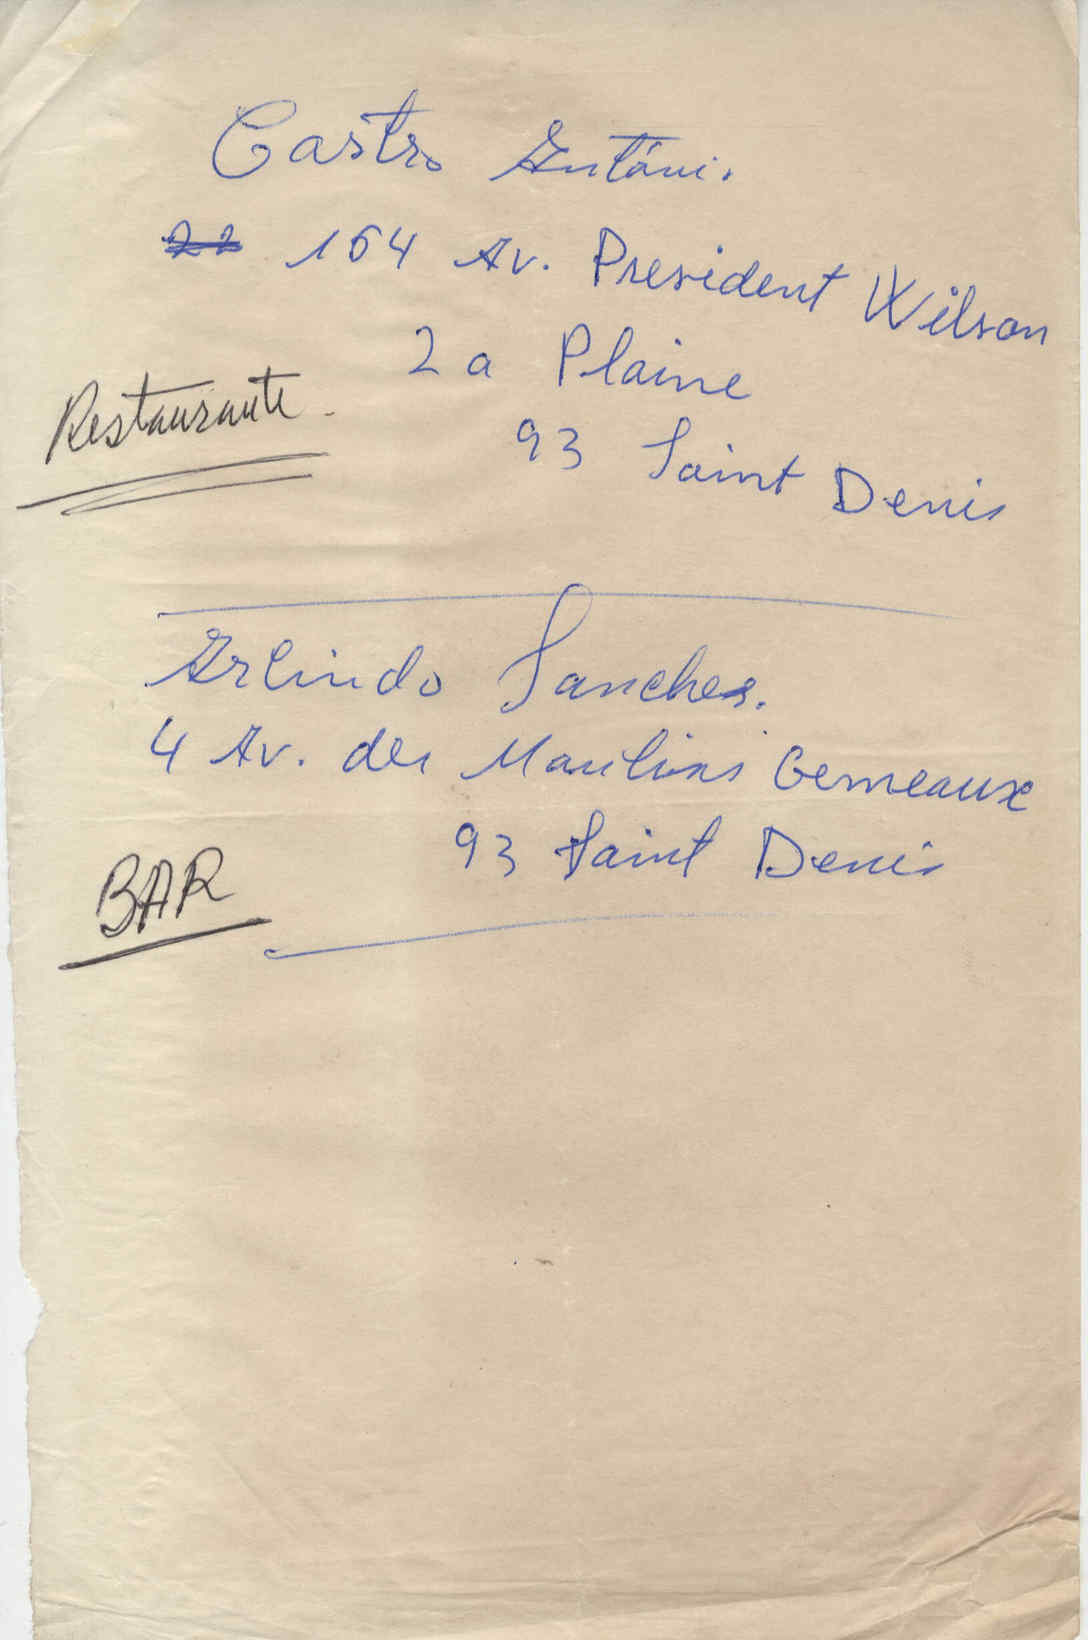 Castro Antóni.
22 164 Av. President Wilson
La Plaine
Restaurante
93 Saint Denis
Arlindo Sanches.
4 Av. des Moulins Gemeaux
93 Saint Denis
BAR